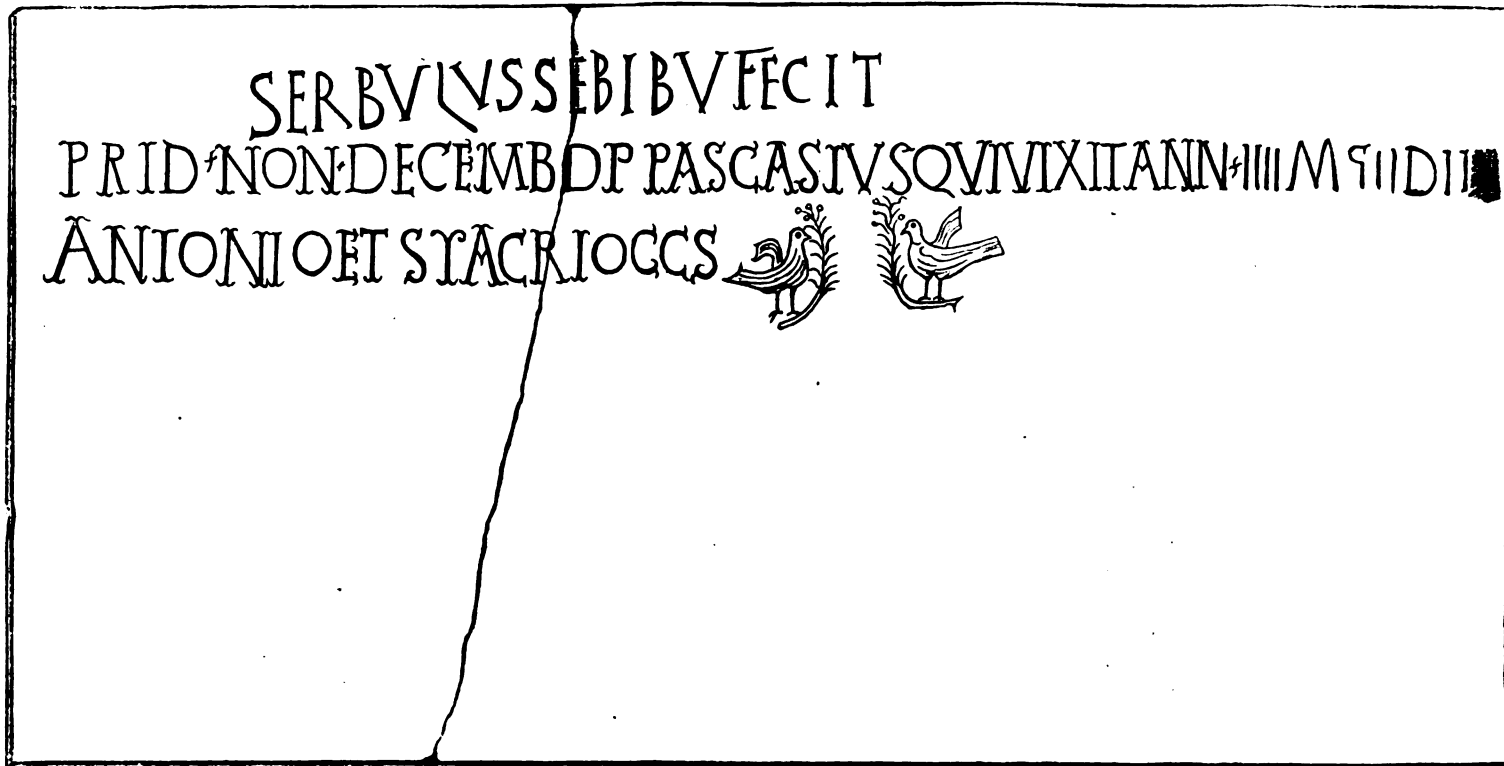 SERBVLVSSEBIBVFECIT
PRID·NON·DECEMBDPPASCASIVSQVIVIXITANN·IIIIMϚIIDII
ANTONIIOETSYACRIOCCS